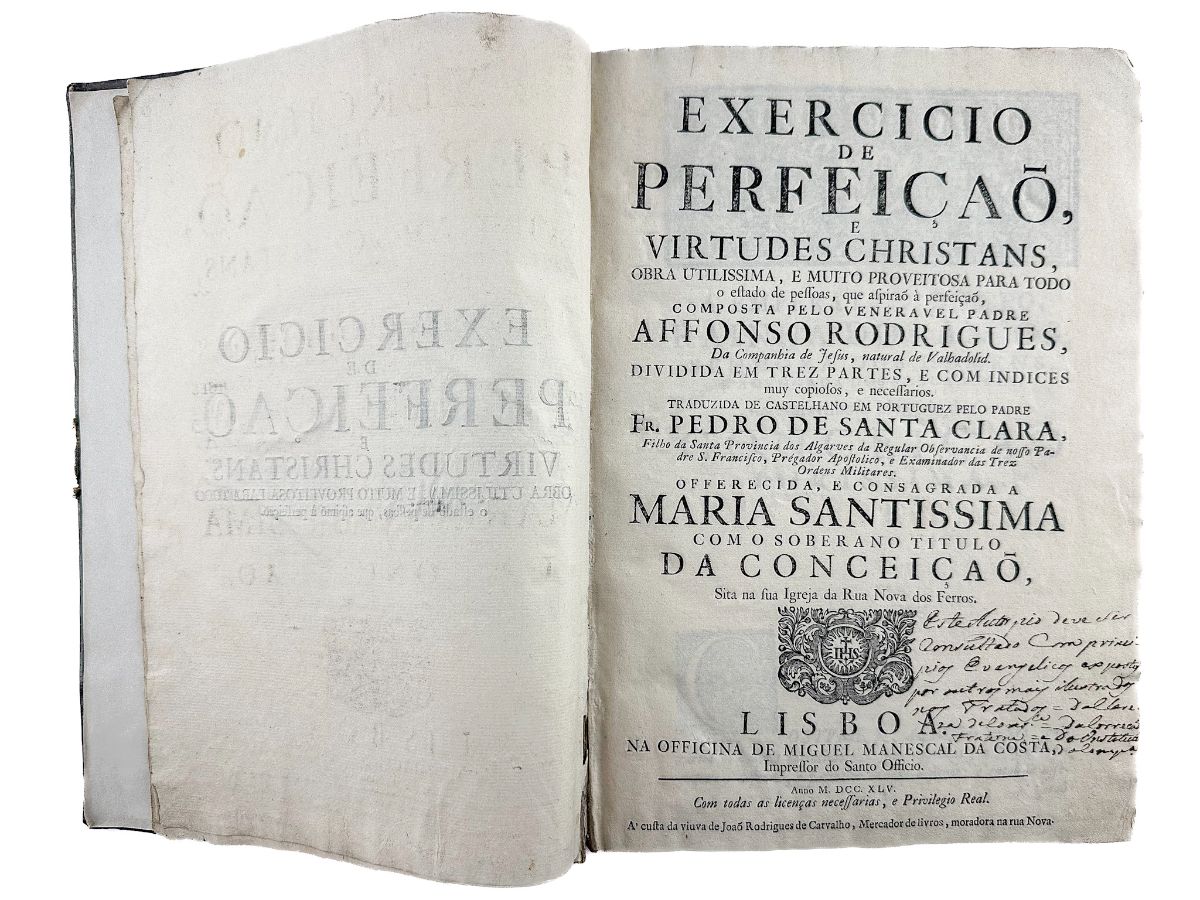 EXERCICIO
DE
PERFEIÇAÕ,
E
VIRTUDES CHRISTANS,
OBRA UTILISSIMA, E MUITO PROVEITOSA PARA TODO
o eſtado de peſſoas, que aſpiraõ à perfeiçaõ,
COMPOSTA PELO VENERAVEL PADRE
AFFONSO RODRIGUES,
Da Companhia de Jeſus, natural de Valhadolid.
DIVIDIDA EM TREZ PARTES, E COM INDICES
muy copioſos, e neceſſarios.
TRADUZIDA DE CASTELHANO EM PORTUGUEZ PELO PADRE
FR. PEDRO DE SANTA CLARA,
Filho da Santa Provincia dos Algarves da Regular Obſervancia de noſſo Pa-
dre S. Franciſco, Prégador Apoſtolico, e Examinador das Trez
Ordens Militares.
OFFERECIDA, E CONSAGRADA A
MARIA SANTISSIMA
COM O SOBERANO TITULO
DA CONCEIÇAÕ,
Sita na ſua Igreja da Rua Nova dos Ferros.
IHS
Este Autor pio deve ser
Consultado Com princi-
pios Evangelicos expostos
por outros mais ilustrados
nos Tratados =
Fraterna =
LISBOA.
NA OFFICINA DE MIGUEL MANESCAL DA COSTA,
Impreſſor do Santo Officio.
Anno M. DCC. XLV.
Com todas as licenças neceſſarias, e Privilegio Real.
A' cuſta da viuva de Joaõ Rodrigues de Carvalho, Mercador de livros, moradora na rua Nova.